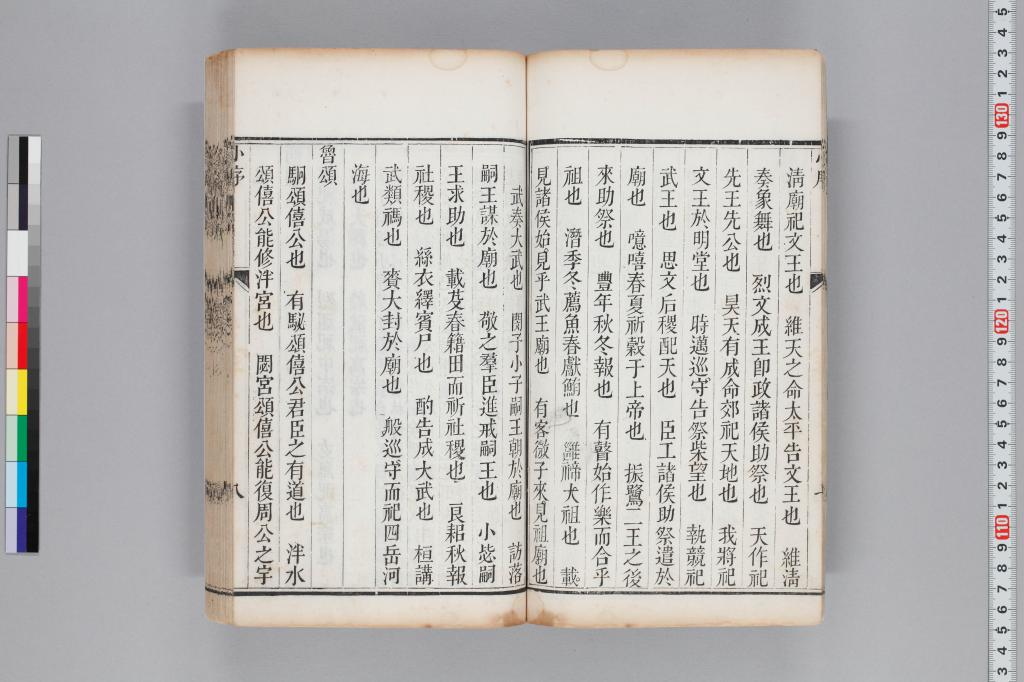 清廟祀文王也　維天之命太平告文王也　維清
奏象舞也　烈文成王卽政諸侯助祭也　天作祀
先王先公也　昊天有成命郊祀天地也　我將祀
文王於明堂也　時邁巡守告祭柴望也　執競祀
武王也　思文后稷配天也　臣工諸侯助祭遣於
廟也　噫嘻春夏祈穀于上帝也　振鷺二王之後
來助祭也　豐年秋冬報也　有瞽始作樂而合乎
祖也　潛季冬薦魚春獻鮪也　雝禘大祖也　載
見諸侯始見乎武王廟也　有客微子來見祖廟也
武奏大武也　閔子小子嗣王朝於廟也　訪落
嗣王謀於廟也　敬之羣臣進戒嗣王也　小毖嗣
王求助也　載芟春籍田而祈社稷也　良耜秋報
社稷也　絲衣繹賓尸也　酌告成大武也　桓講
武類禡也　賚大封於廟也　般巡守而祀四岳河
海也
魯頌
駉頌僖公也　有駜頌僖公君臣之有道也　泮水
頌僖公能修泮宮也　閟宮頌僖公能復周公之宇
小序
八